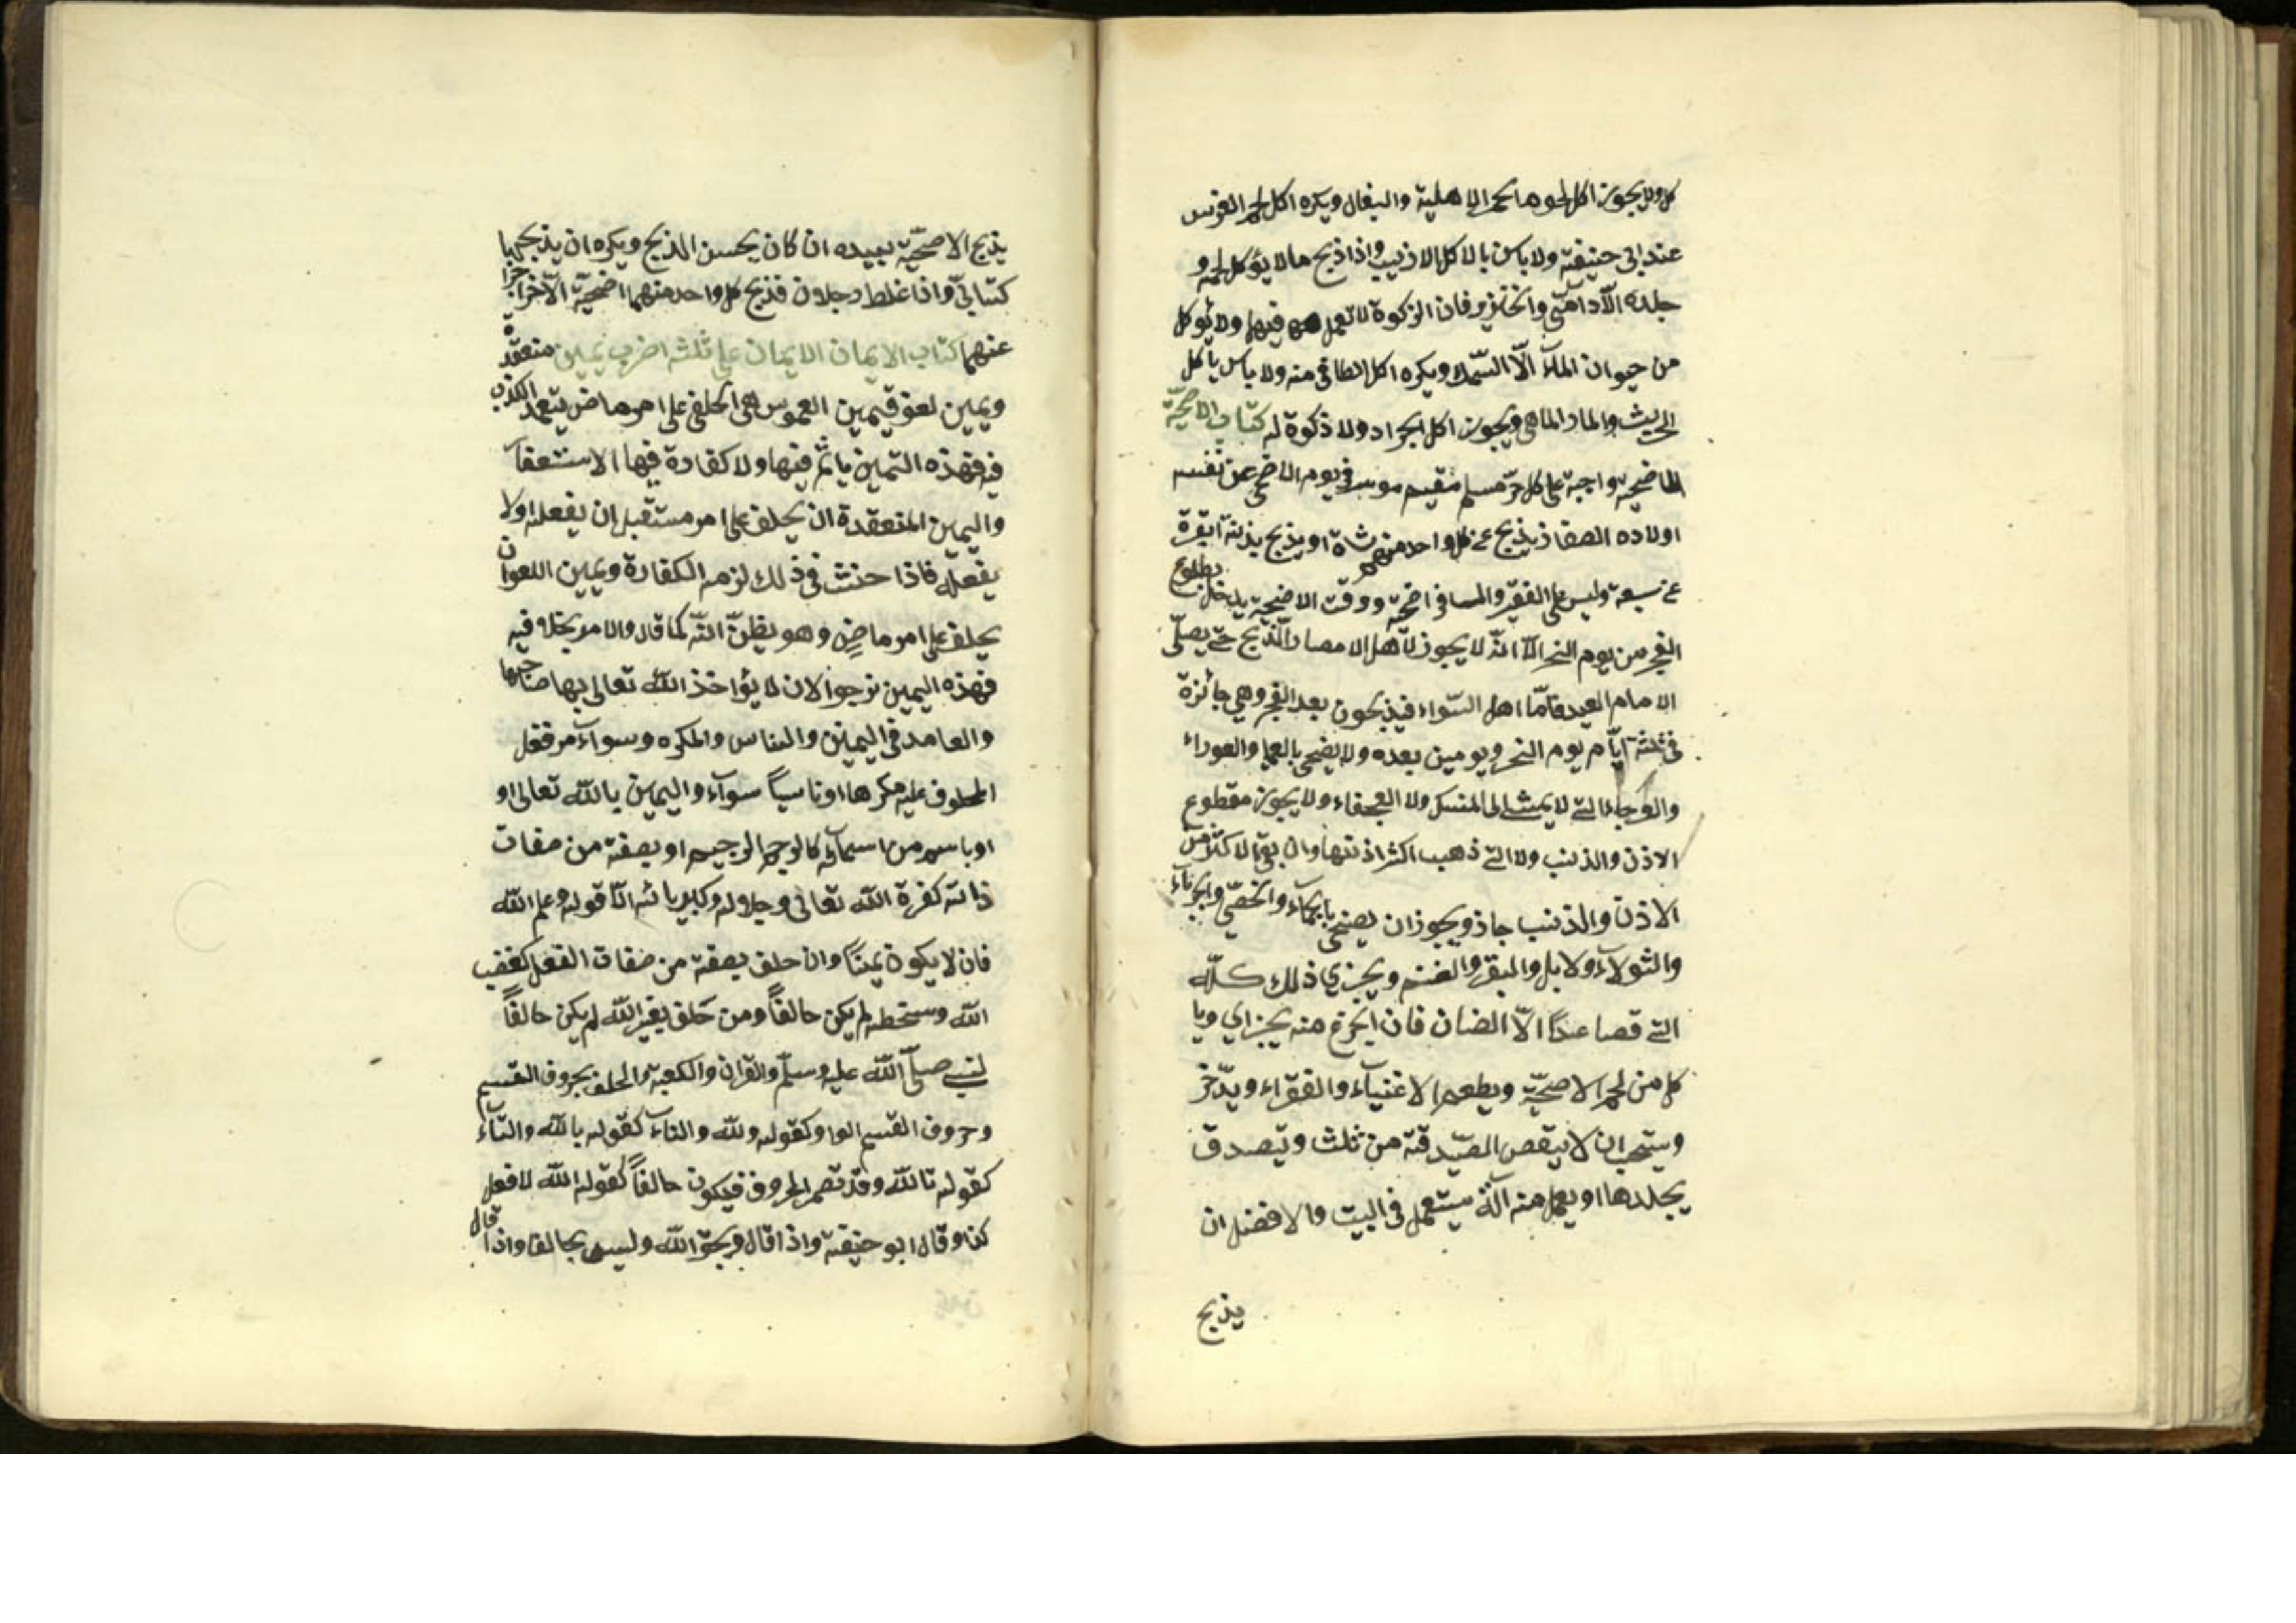 كل ولا يجوز اكل لحوها لحمر الاهلية والبغال ويكره اكل لحم الفرس
عند ابى حنيفة ولا باس بالاكل الارنب واذا ذبح ما لا يؤكل لحمه و
جلده الآدامىّ والخنزير فان الزكوة لا تعمل فيهما ولا يؤكل
من حيوان المآء الّا السّمك ويكره اكل الطافى منه ولا باس ياكل
الجريث والمار الماهى ويجوز اكل الجراد ولا ذكوة له كتاب الاضحيّة
الاضحية واجبة على كل حرّ مسلم مقيم موسر فى يوم الاضحى عن نفسه
اولاده الصغار يذبح عن كل واحد منهم شاة او يذبح بدنة ابقرة
عن سبعة وليس على الفقير والمسافر اضحية ووقت الاضحية يدخل بطلوع
الفجر من يوم النحر الّا انّه لا يجوز لاهل الامصار الذبح حتى يصلّى
الامام العيد فامّا اهل السّواد فيذبحون بعد الفجر وهى جائزة
فى ثلثة ايّام يوم النحر ويومين بعده ولا يضحى بالعميا والعوراء
والعرجاء التى لا يمشى الى المنسك ولا العجفاء ولا يجوز مقطوع
الاذن والذنب ولا التى ذهب اكثر اذنها وان بقى الاكثر من
الاذن والذنب جاز ويجوز ان يضحى بالجمآء والخصىّ والجرباء
والثولآء ولابل والبقر والغنم ويجزى ذلك كلّه
التى فصاعداً الّا الضان فان الجزع منه يجزاى ويا
كل من لحم الاضحيّة ويطعم الاغنيآء والفقراء ويدّخر
وستحب ان لا ينقص الصّدقة من ثلث وتيصدق
بجلدها او يعمل منه آلة ستعمل فى البيت والافضل ان
يذبح
يذبح الاضحيّة بيده ان كان يحسن الذبح ويكره ان يذبحها
كتابىّ واذا غلط رجلان فذبح كل واحد منهما اضحيّة الآخر اجزا
عنهما كتاب الايمان الايمان على ثلثة اضرب يمين منعقدة
ويمين لغو فيمين الغموس هى الحلف على امر ماض يتعمد الكذب
فيه فهذه اليمين ياثم فيها ولا كفارة فيها الا ستغفآ
واليمين المنعقدة ان يحلف على امر مستقبل ان يفعله اولا
يفعله فاذا حنث فى ذلك لزمه الكفارة ويمين اللغو ان
يحلف على امر ماضٍ وهو يظنّ انّه كما قال والامر بخلافه
فهذه اليمين نرجوا لان لا يؤاخذ الله تعالى بها صاحبها
والعامد فى اليمين والناس والمكره وسوآء من فعل
المحلوف عليه مكرها او ناسياً سوآء واليمين بالله تعالى او
او باسم من اسمآئه كالرحمن الرحيم او بصفة من صفات
ذاته كعزة الله تعالى وجلاله وكبريائه الّا قوله وعلم الله
فان لا يكون يميناً وان حلف بصفة من صفات الفعل كغضب
الله وسخطه لم يكن حالفاً ومن حلف بغير الله لم يكن حالفاً
لنبى صلّى الله عليه وسلّم والقران والكعبة والحلف بحروف القسم
وحروف القسم الواو كقوله ولله والبآء كقوله بالله والتآء
كقوله تالله وقد تضمر الحروف فيكون حالفاً كقوله الله لافعل
كذا وقال ابو حنيفة واذا قال وبحق الله وليس بحالف واذا قال